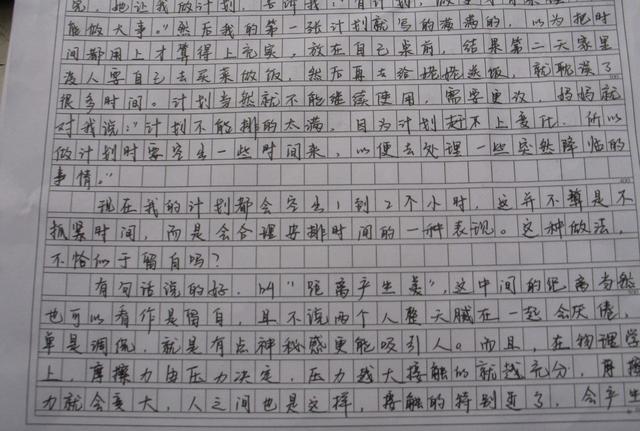 完，她让我做计划，告诉我："有计划，做
能做大事。"然后我的第一张计划就写的满满的，以为把时
间都用上才算得上充实，放在自己桌前，结果第二天家里
没人要自己去买菜做饭，然后再去给姥姥送饭，就耽误了
很多时间。计划当然就不能继续使用，需要更改，妈妈就
对我说："计划不能排的太满，因为计划赶不上变化，所以
做计划时要空出一些时间来，以便去处理一些突然降临的
事情。"
现在我的计划都会空出1到2个小时，这并不算是不
抓紧时间，而是会合理安排时间的一种表现。这种做法，
不恰似于留白吗？
有句话说的好，叫"距离产生美"，这中间的距离当然
也可以看作是留白，且不说两个人整天腻在一起会厌倦，
单是调侃，就是有点神秘感更能吸引人。而且，在物理学
上，摩擦力由压力决定，压力越大接触的就越充分，摩擦
力就会变大，人之间也是这样，接触的特别近了，会产生